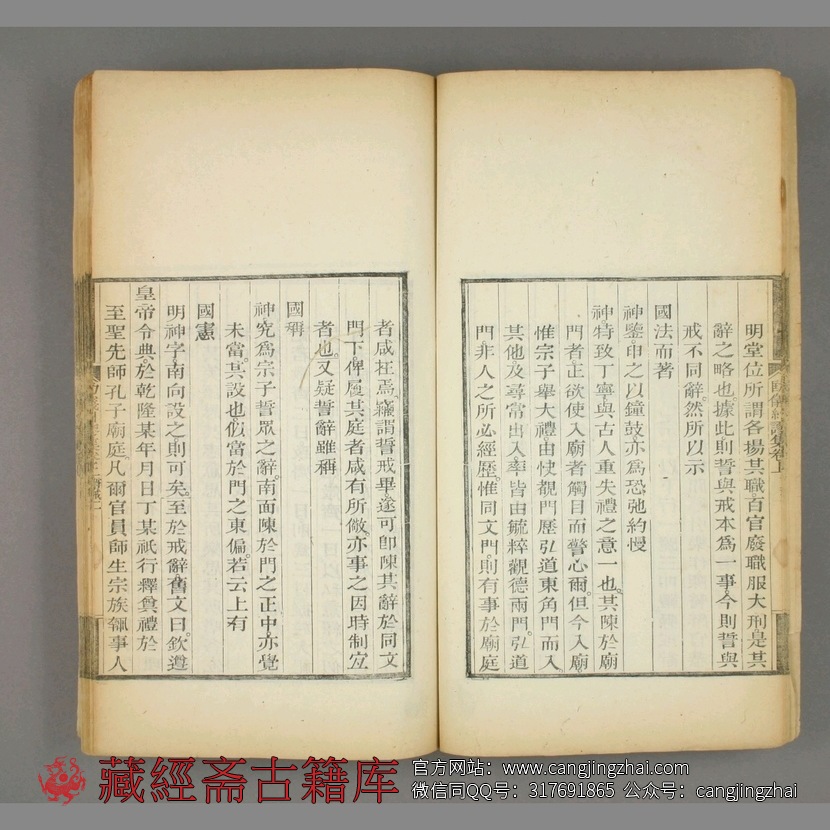 明堂位所謂各揚其職百官廢職服大刑是其
辭之略也據此則誓與戒本為一事今則誓與
戒不同辭然所以示
國法而著
神鑒印之以鐘鼓亦為恐弛約慢
神特致丁寧與古人重失禮之意一也其陳於廟
門者正欲使入廟者觸目而警心爾但今入廟
惟宗子舉大禮由快覩門歷弘道東角門而入
其他及尋常出入率皆由毓粹觀德兩門弘道
門非人之所必經歷惟同文門則有事於廟庭
者咸枉焉竊謂誓戒畢遂可即陳其辭於同文
門下俾履其庭者咸有所儆亦事之因時制宜
者也又疑誓辭雖稱
國稱
神究為宗子誓眾之辭南面陳於門之正中亦覺
未當其設也似當於門之東偏若云上有
國憲
明神字南向設之則可矣至於戒辭舊文曰欽遵
皇帝令典於乾隆某年月日丁某祇行釋奠禮於
至聖先師孔子廟庭凡爾官員師生宗族執事人
藏經斋古籍库
官方网站：www.cangjingzhai.com
微信同QQ号：317691865 公众号：cangjingzhai